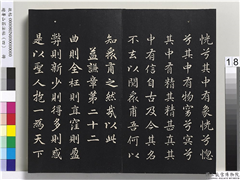 恍兮其中有象恍兮惚
兮其中有物窈兮冥兮
其中有精其精甚真其
中有信自古及今其名
不去以閱衆甫吾何以
知衆甫之然哉以此
益謙章第二十二
曲則全枉則直窪則盈
弊則新少則得多則惑
是以聖人抱一為天下
18